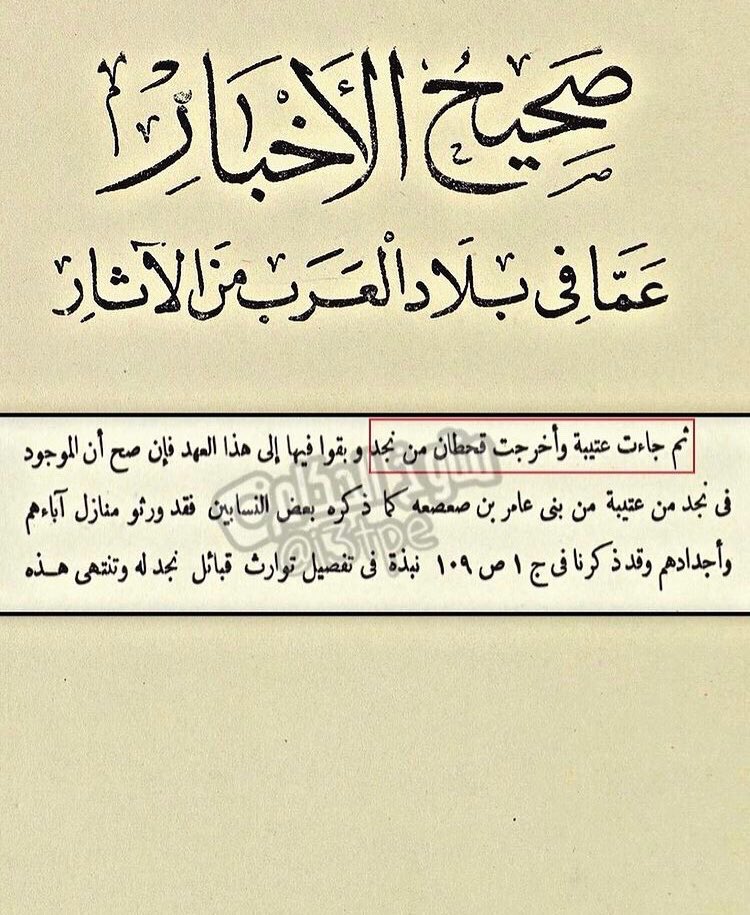 صَحِيحُ الأَخْبَارِ
عَمَّا فِى بِلَادِ الْعَرَبِ مِنَ الآثَارِ
ثم جاءت عتيبة وأخرجت قحطان من نجد و بقوا فيها إلى هذا العهد فإن صح أن الموجود
فى نجد من عتيبة من بنى عامر بن صعصعه كما ذكره بعض النسابين فقد ورثو منازل آباءهم
وأجدادهم وقد ذكرنا فى ج ١ ص ١٠٩ نبذة فى تفصيل توارث قبائل نجد له وتنتهى هـذه